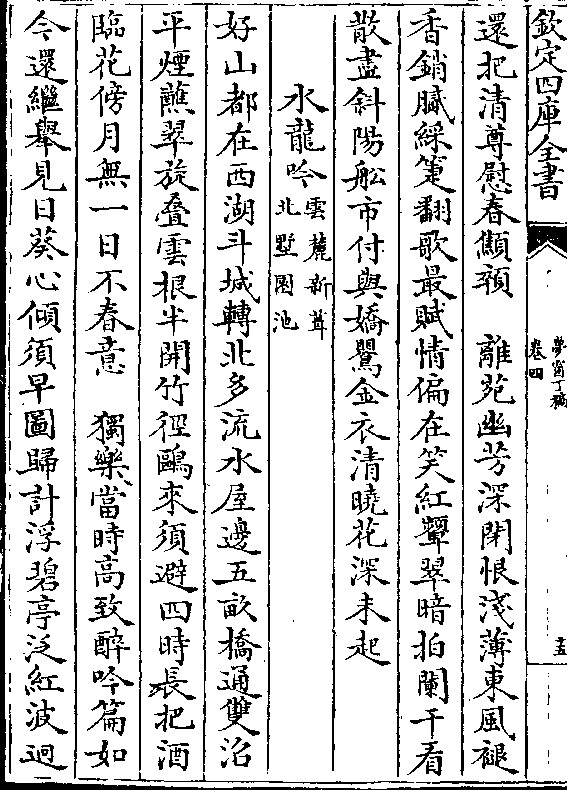 欽定四庫全書
夢窗丁稿
卷四
還把清尊慰春顦顇　離苑幽芳深閉恨淺薄東風褪
香銷膩綵箑翻歌最賦情偏在笑紅顰翠暗拍闌干看
散盡斜陽船市付與嬌鶯金衣清曉花深未起
水龍吟雲麓新葺
北墅園池
好山都在西湖斗城轉北多流水屋邊五畝橋通雙沼
平煙蘸翠旋疊雲根半開竹徑鷗來須避四時長把酒
臨花傍月無一日不春意　獨樂當時高致醉吟篇如
今還繼舉見日葵心傾須早圖歸計浮碧亭泛紅波迥